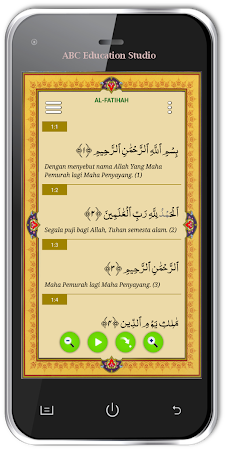 ABC Education Studio
AL-FATIHAH
1:1
بِسْمِ ٱللَّهِ ٱلرَّحْمَٰنِ ٱلرَّحِيمِ ﴿١﴾
Dengan menyebut nama Allah Yang Maha
Pemurah lagi Maha Penyayang. (1)
1:2
ٱلْحَمْدُ لِلَّهِ رَبِّ ٱلْعَٰلَمِينَ ﴿٢﴾
Segala puji bagi Allah, Tuhan semesta alam. (2)
1:3
ٱلرَّحْمَٰنِ ٱلرَّحِيمِ ﴿٣﴾
Maha Pemurah lagi Maha Penyayang. (3)
1:4
مَٰلِكِ يَوْمِ ٱلدِّينِ ﴿٤﴾